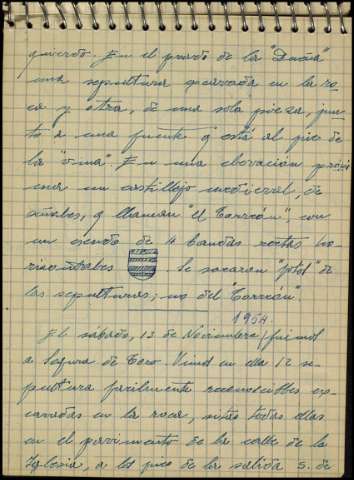 quierdo. En el prado de la "Dueña"
una sepultura excavada en la ro-
ca y otra, de una sola pieza, jun-
to a una fuente q está al pie de
la "ermita". En una elevación próxi
ma un castillejo medieval, de
sillares, q llaman "el Torreón", con
un escudo de 4 bandas rectas ho-
rizontales se sacaron "fotos" de
las sepulturas; no del "Torreón".
1954
El sábado, 13 de Noviembre, fuimos
a Segura de Toro. Vimos en ella 12 se-
pulturas facilmente reconocibles ex-
cavadas en la roca, sitas todas ellas
en el pavimento de la calle de la
Iglesia, a los pies de la salida S. de